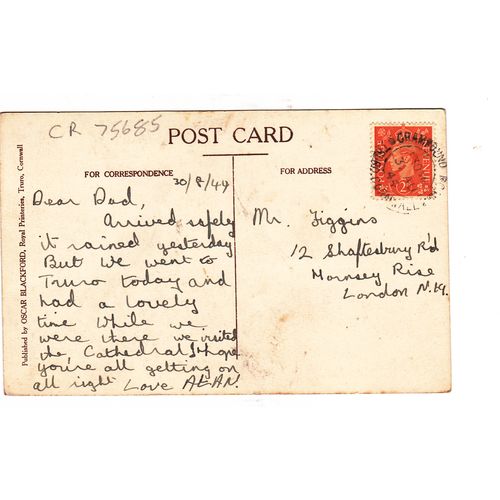 CR 75685
POST CARD
FOR CORRESPONDENCE
FOR ADDRESS
Published by OSCAR BLACKFORD, Royal Printeries, Truro, Cornwall
30/8/49
Dear Dad,
Arrived safely
it rained yesterday
But we went to
Truro today and
had a lovely
time While we
were there we visited
the, Cathedral I hope
you're all getting on
all right Love ALAN.
Mr. Figgins
12 Shaftesbury R'd
Hornsey Rise
London N.19.
GRAMPOUND RD
TRURO
CORNWALL
REVENUE
2